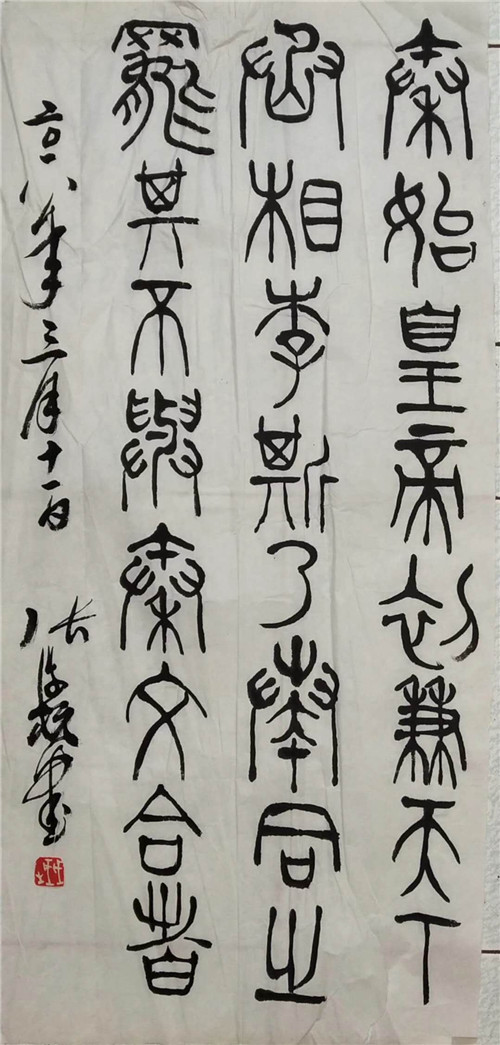 秦始皇帝初兼天下
丞相李斯乃奏同之
罷其不與秦文合者
二〇一八年三月十一日 张 书